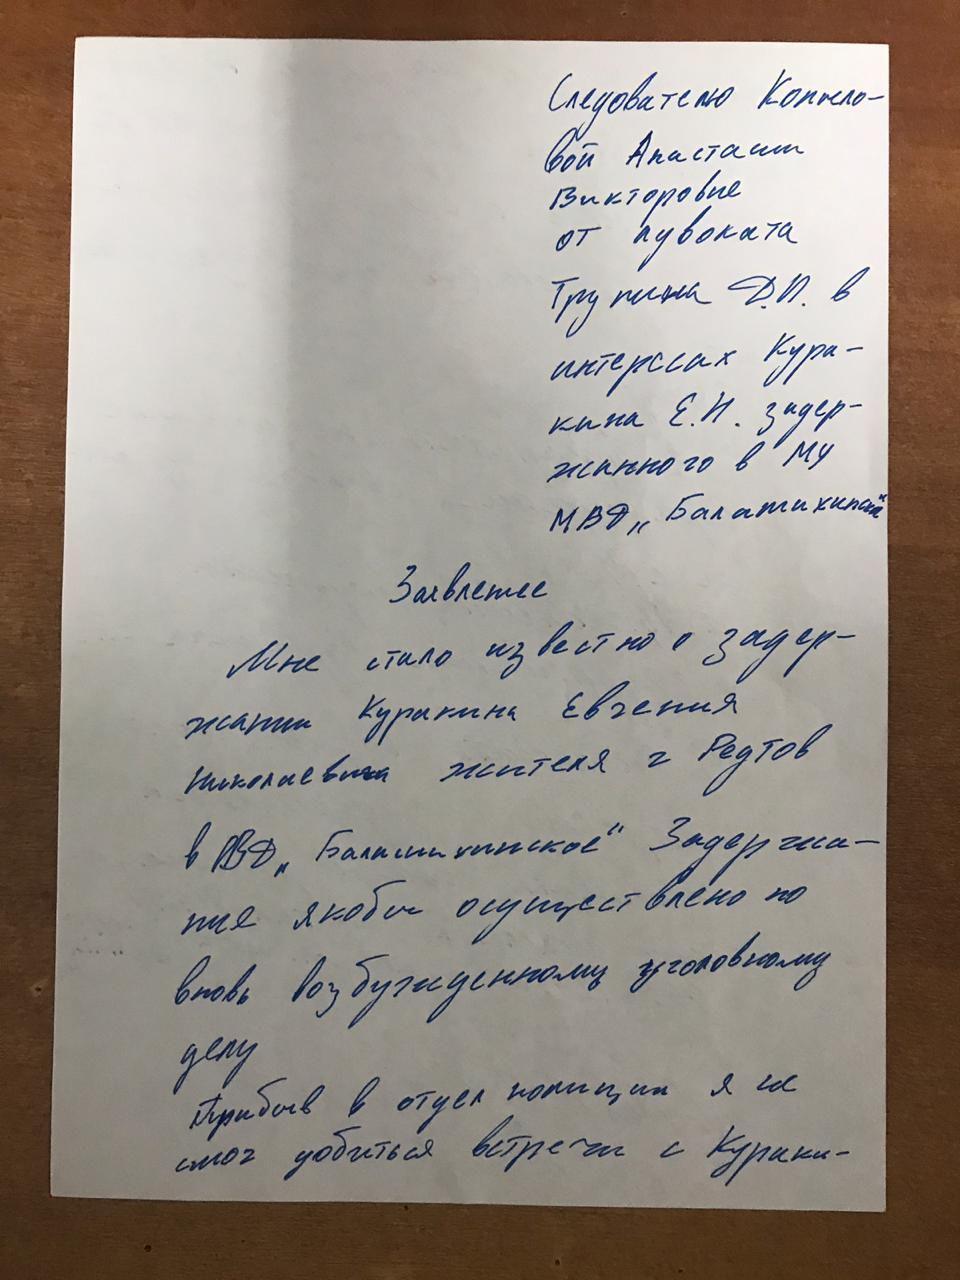 Следователю Копыло-
вой Анастасии
Викторовне
от адвоката
Трунина Д.И. в
интересах Кура-
кина Е.Н. задер-
жанного в МУ
МВД „Балашихинское"
Заявление
Мне стало известно о задер-
жании Куракина Евгения
Николаевича жителя г Реутов
в МВД „Балашихинское" Задержа-
ние якобы осуществлено по
вновь возбужденному уголовному
делу
Прибыв в отдел полиции я не
смог добиться встречи с Кураки-